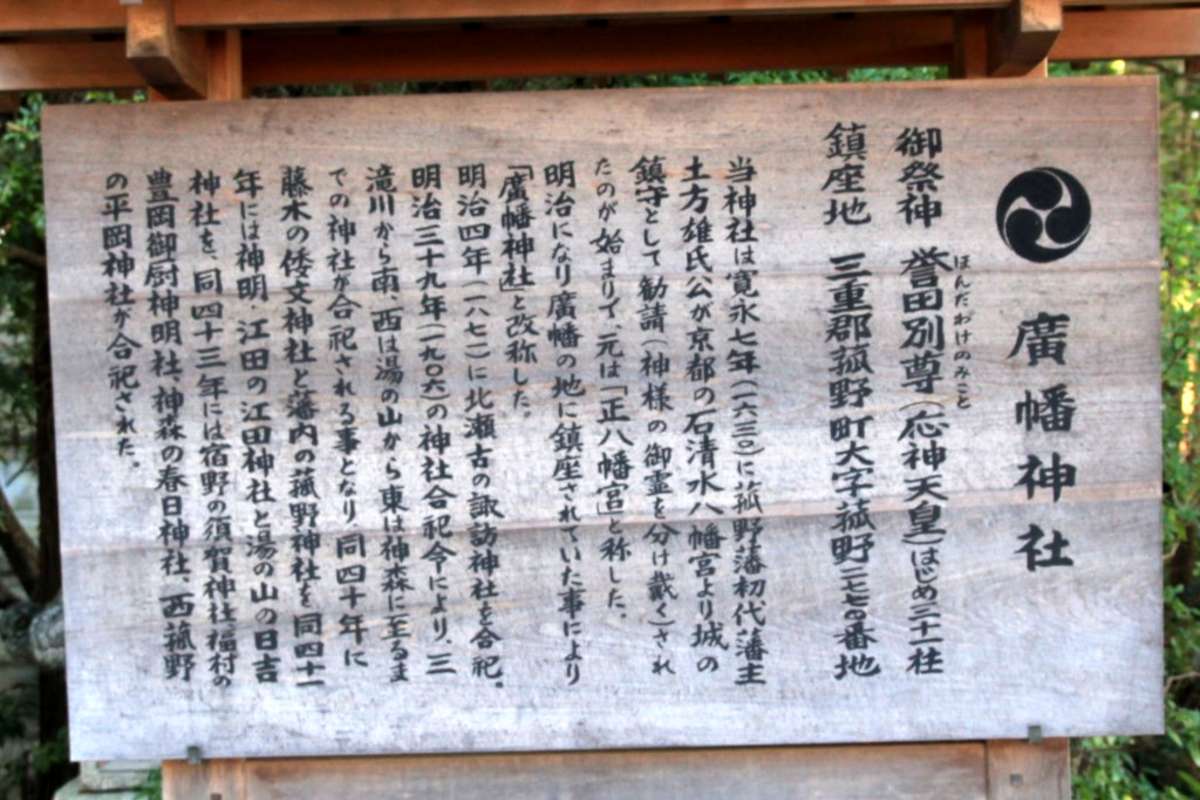 廣幡神社
御祭神 誉田別尊(応神天皇)はじめ三十一柱
ほんだわけのみこと
鎮座地 三重郡菰野町大字菰野二七七四番地
当神社は寛永七年(一六三〇)に菰野藩初代藩主
土方雄氏公が京都の石清水八幡宮より城の
鎮守として勧請(神様の御霊を分け戴く)され
たのが始まりで、元は「正八幡宮」と称した。
明治になり廣幡の地に鎮座されていた事により
「廣幡神社」と改称した。
明治四年(一八七一)に北瀬古の諏訪神社を合祀。
明治三十九年(一九〇六)の神社合祀令により、三
滝川から南、西は湯の山から東は神森に至るま
での神社が合祀される事となり、同四十年に
藤木の倭文神社と藩内の菰野神社を同四十一
年には神明、江田の江田神社と湯の山の日吉
神社を、同四十三年には宿野の須賀神社、福村の
豊岡御厨神明社、神森の春日神社、西菰野
の平岡神社が合祀された。